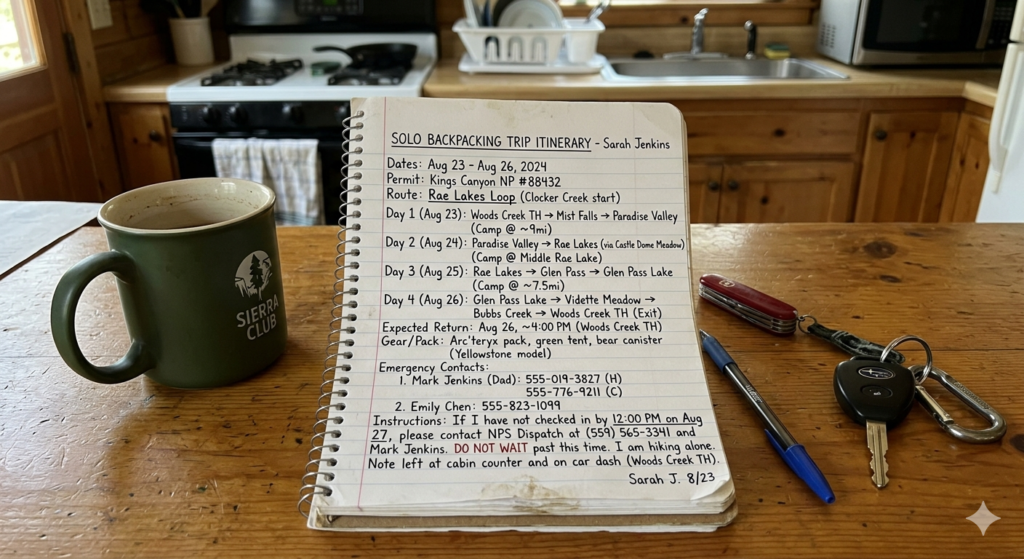 SOLO BACKPACKING TRIP ITINERARY - Sarah Jenkins
Dates: Aug 23 - Aug 26, 2024
Permit: Kings Canyon NP #88432
Route: Rae Lakes Loop (Clocker Creek start)
Day 1 (Aug 23): Woods Creek TH → Mist Falls → Paradise Valley
(Camp @ ~9mi)
Day 2 (Aug 24): Paradise Valley → Rae Lakes (via Castle Dome Meadow)
(Camp @ Middle Rae Lake)
Day 3 (Aug 25): Rae Lakes → Glen Pass → Glen Pass Lake
(Camp @ ~7.5mi)
Day 4 (Aug 26): Glen Pass Lake → Vidette Meadow →
Bubbs Creek → Woods Creek TH (Exit)
Expected Return: Aug 26, ~4:00 PM (Woods Creek TH)
Gear/Pack: Arc'teryx pack, green tent, bear canister
(Yellowstone model)
Emergency Contacts:
1. Mark Jenkins (Dad): 555-019-3827 (H)
555-776-9211 (C)
2. Emily Chen: 555-823-1099
Instructions: If I have not checked in by 12:00 PM on Aug
27, please contact NPS Dispatch at (559) 565-3341 and
Mark Jenkins. DO NOT WAIT past this time. I am hiking alone.
Note left at cabin counter and on car dash (Woods Creek TH).
Sarah J. 8/23
SIERRA
CLUB